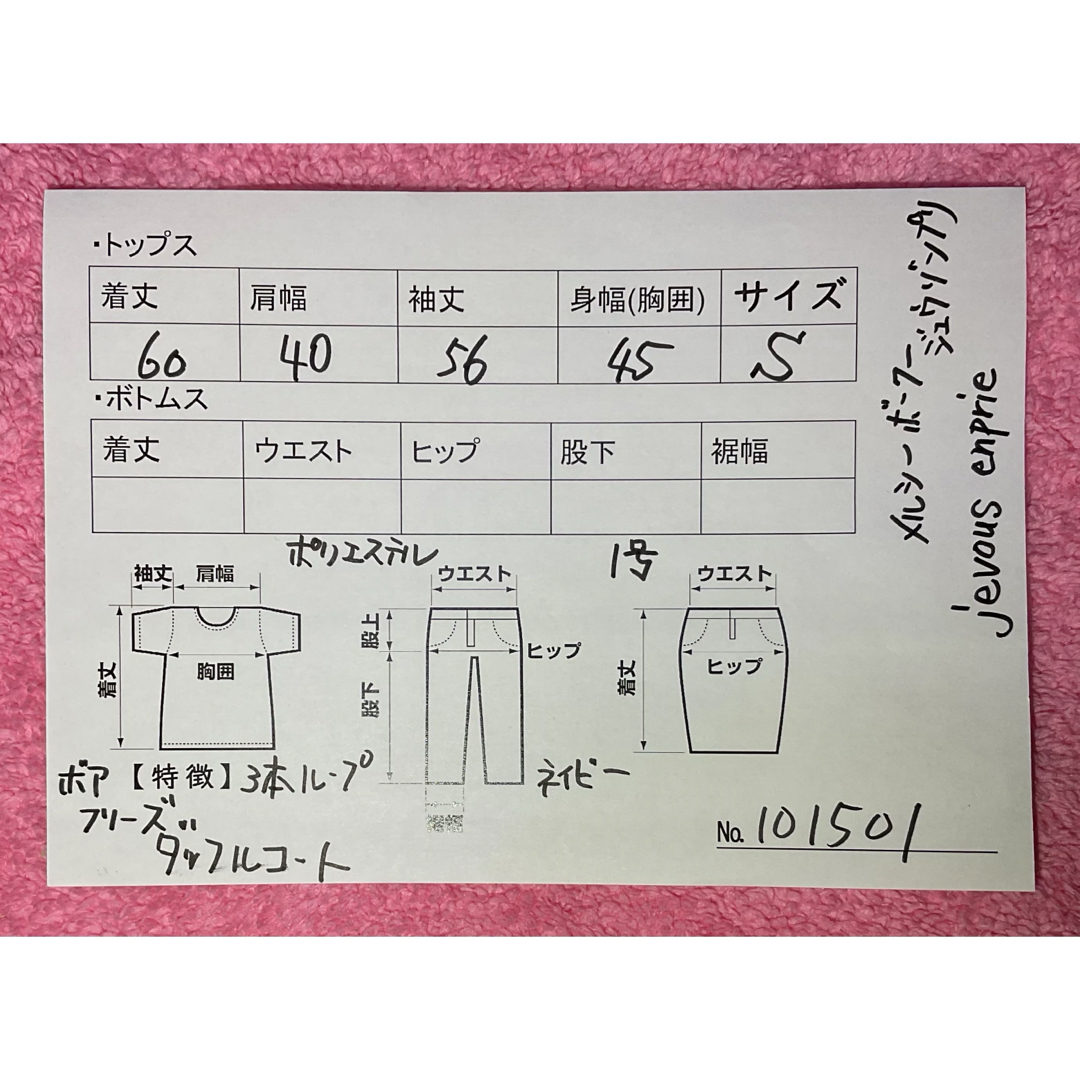 ・トップス
着丈 肩幅 袖丈 身幅(胸囲) サイズ
60 40 56 45 S
・ボトムス
着丈 ウエスト ヒップ 股下 裾幅
ポリエステル 1号
袖丈 肩幅
胸囲
着丈
ウエスト
股上
ヒップ
股下
裾幅
ウエスト
ヒップ
着丈
ボア 【特徴】3本ループ ネイビー
フリーズ
ダッフルコート
No. 101501
メルシーボークー
ジュウソンプリ
jevous enprie